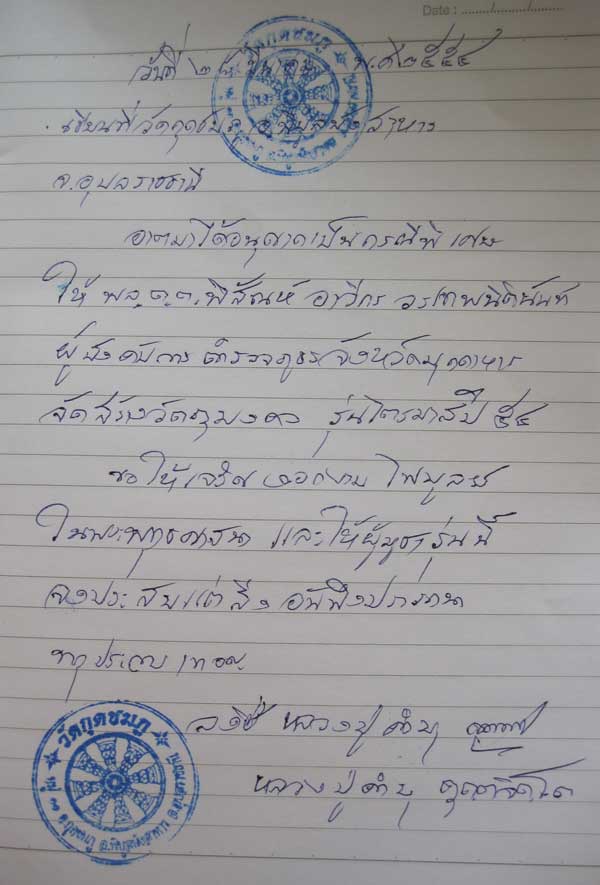 Date : ......../......../........
วันที่ ๒๘ มีนาคม พ.ศ. ๒๕๕๔
เขียนที่วัดกุดชมภู อ.พิบูลมังสาหาร
จ.อุบลราชธานี
อาตมาได้อนุญาตเป็นกรณีพิเศษ
ให้ พล.ต.ต.พิสัณห์ อาวีกร วรเทพนิตินันท์
ผู้บังคับการ ตำรวจภูธรจังหวัดมุกดาหาร
จัดสร้างวัตถุมงคล รุ่นไตรมาสปี ๕๔
ขอให้เจริญงอกงาม ไพบูลย์
ในพระพุทธศาสนา และให้ผู้บูชารุ่นนี้
จงประสบแต่สิ่งอันพึงปรารถนา
ทุกประการ เทอญ
ลงชื่อ หลวงปู่คำบุ
หลวงปู่คำบุ คุตฺตจิตฺโต
วัดกุดชมภู
วัดกุดชมภู